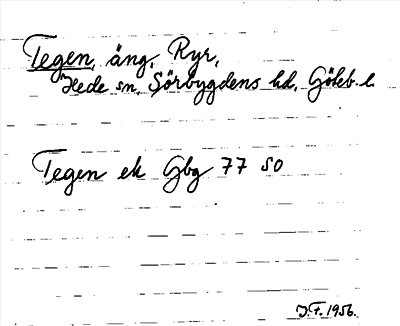 Tegen, äng. Ryr,
Hede sn. Sörbygdens hd. Göteb. l.
Tegen ek Gbg 77 SO
J.F. 1956.